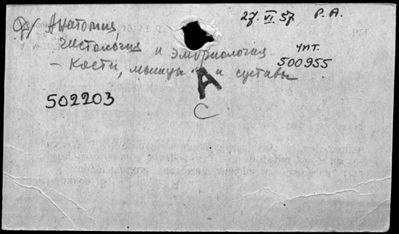 27.VI.57 Р.А.
Анатомия,
гистология и эмбриология
- Кости, мышцы и суставы
чит.
500955
А
502203
С